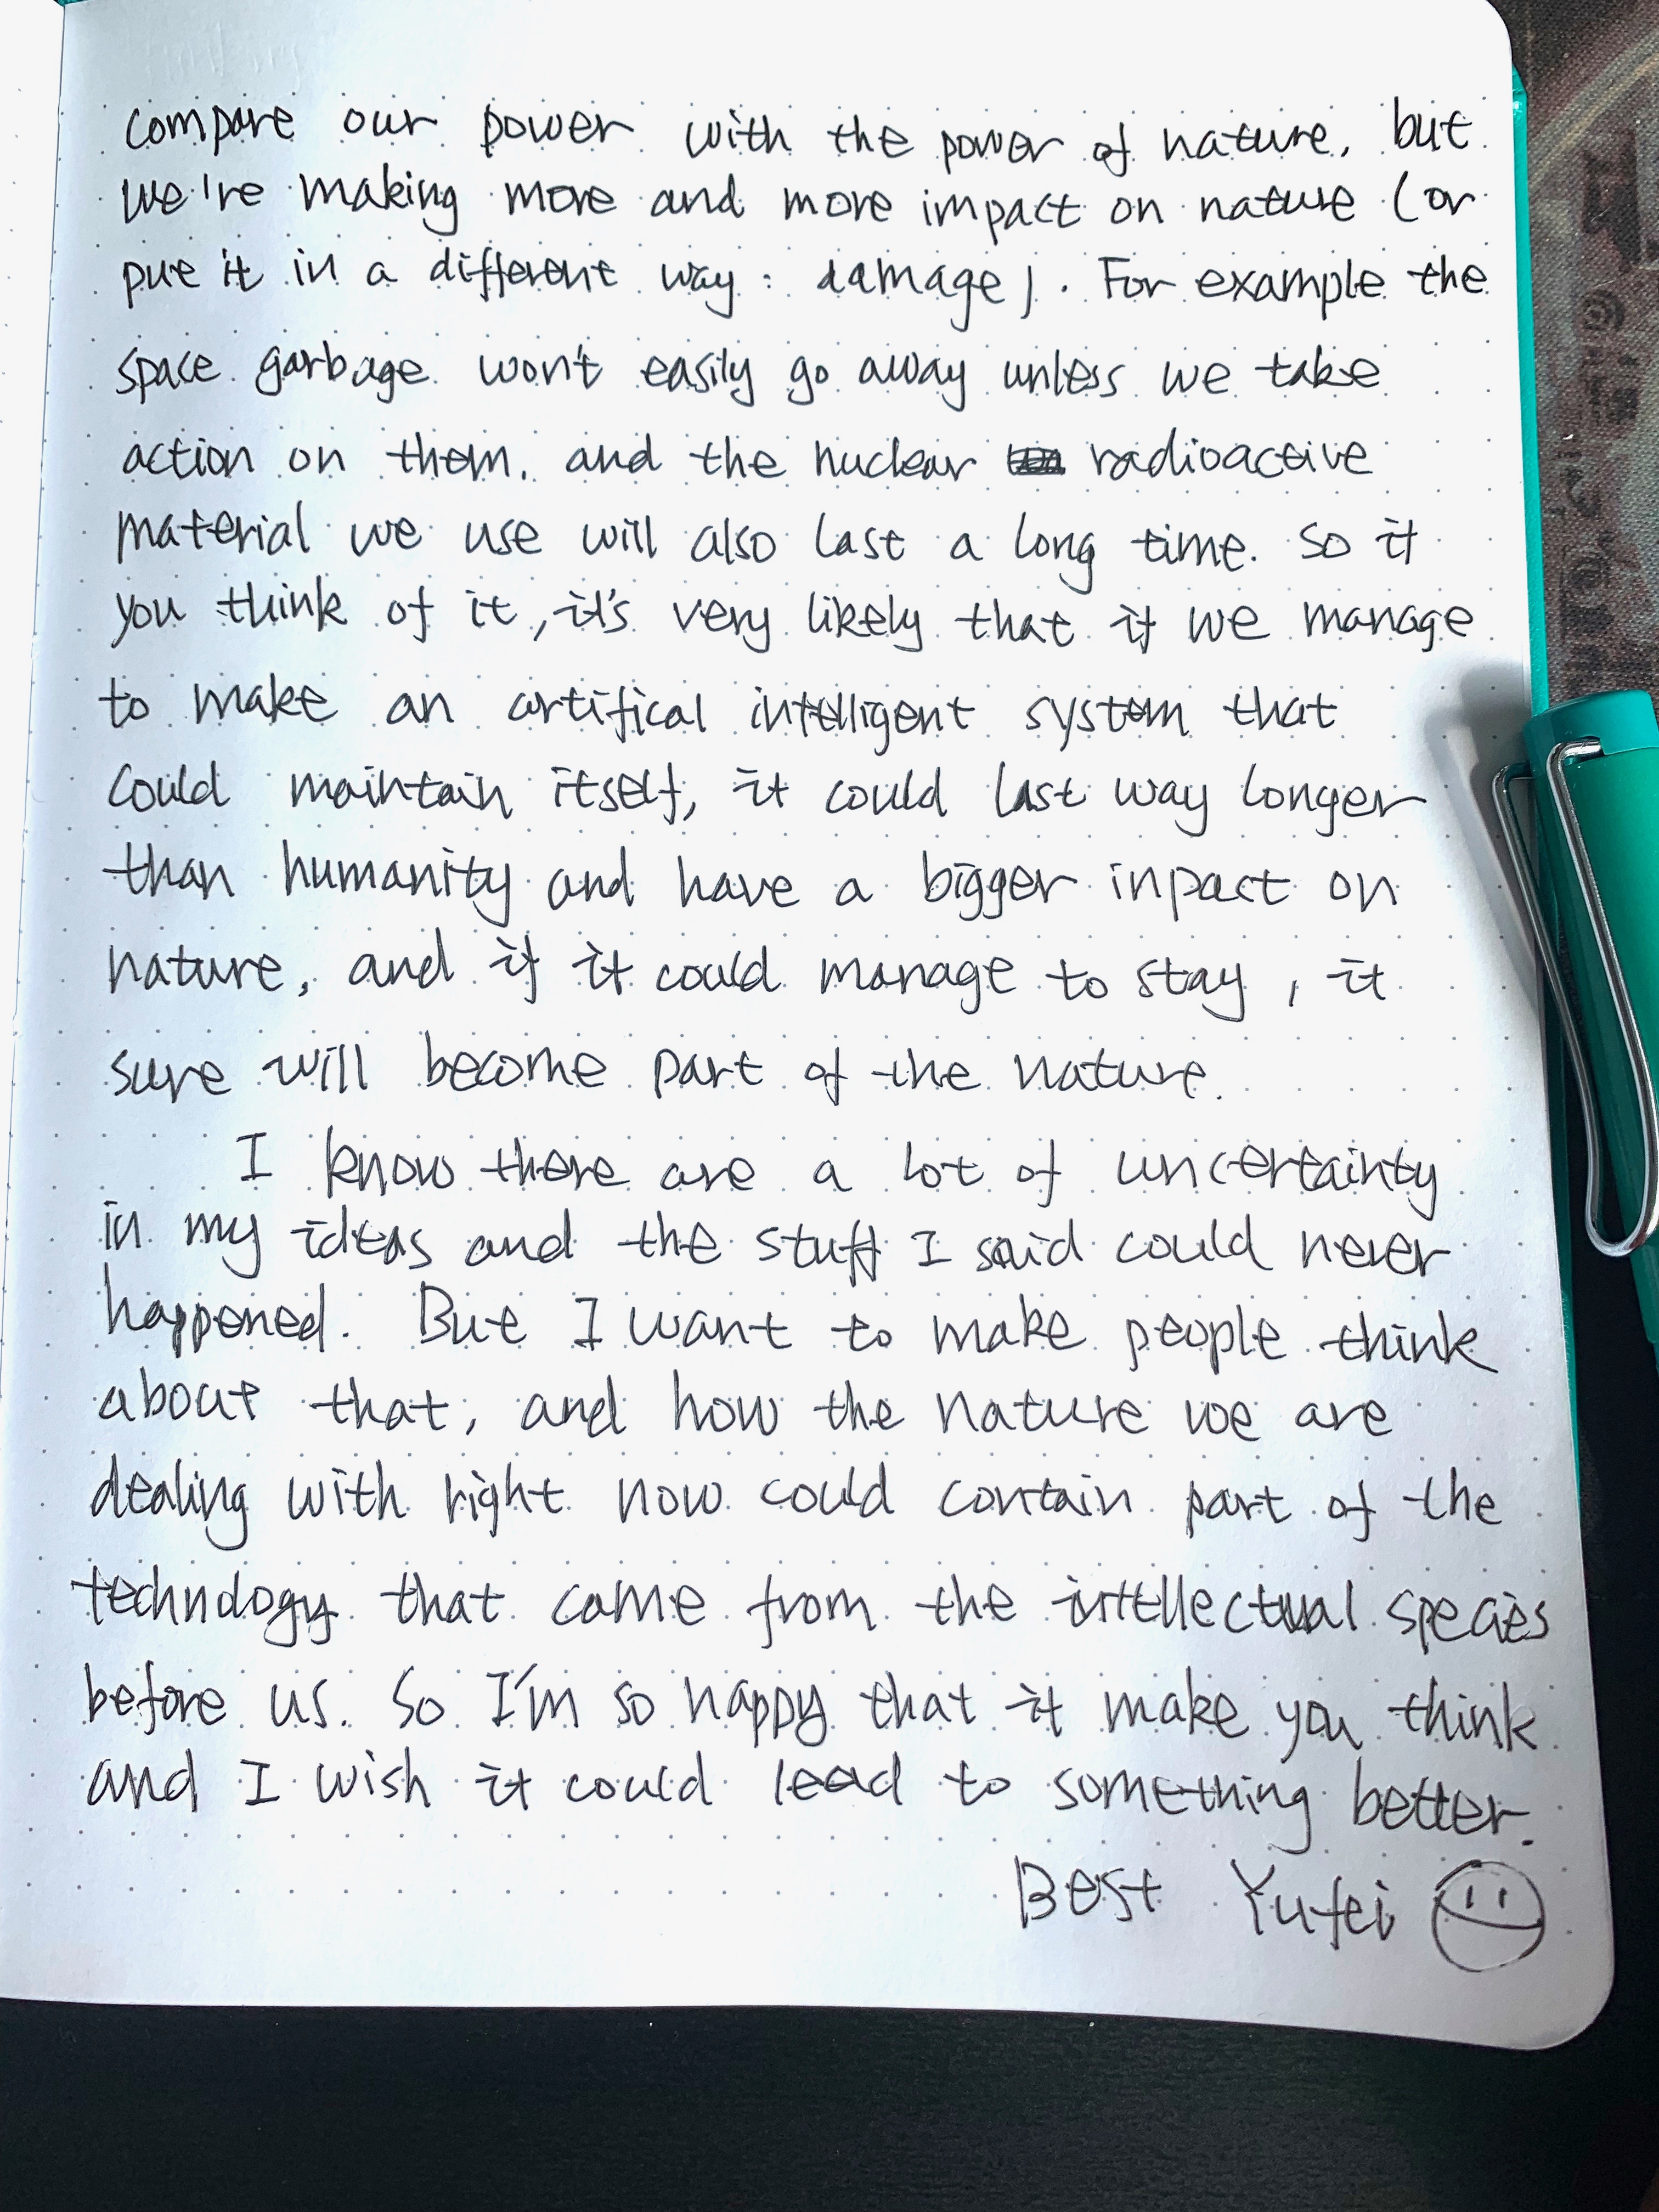 compare our power with the power of nature, but
we're making more and more impact on nature (or
put it in a different way: damage). For example the
space garbage won't easily go away unless we take
action on them, and the nuclear radioactive
material we use will also last a long time. So if
you think of it, it's very likely that if we manage
to make an artifical intelligent system that
could maintain itself, it could last way longer
than humanity and have a bigger inpact on
nature, and if it could manage to stay, it
sure will become part of the nature.
I know there are a lot of uncertainty
in my ideas and the stuff I said could never
happened. But I want to make people think
about that, and how the nature we are
dealing with right now could contain part of the
technology that came from the intellectual species
before us. So I'm so happy that it make you think
and I wish it could lead to something better.
Best Yufei